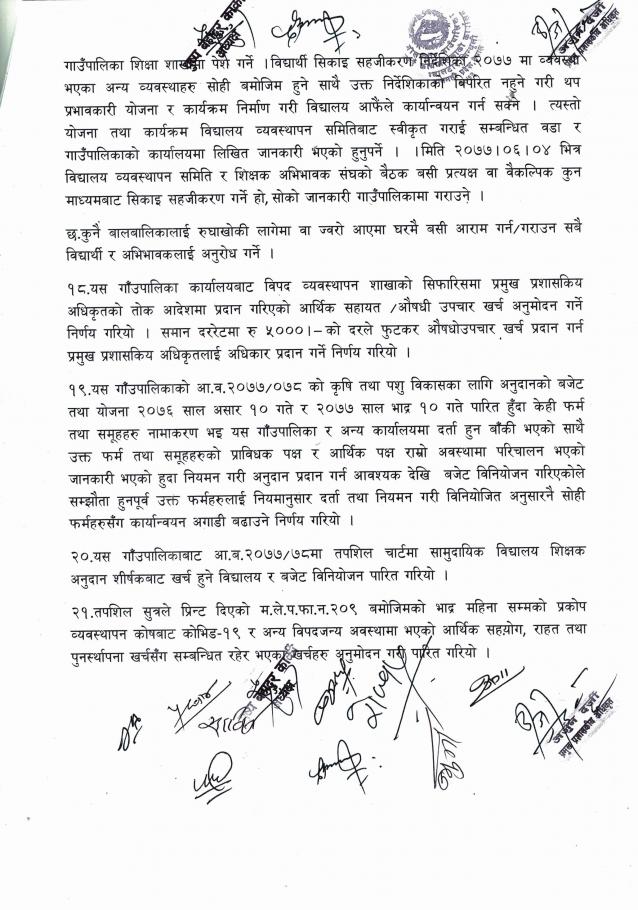 गाउँपालिका शिक्षा शाखामा पेश गर्ने । विद्यार्थी सिकाइ सहजीकरण निर्देशिका २०७७ मा व्यवस्था
भएका अन्य व्यवस्थाहरु सोही बमोजिम हुने साथै उक्त निर्देशिकाका विपरित नहुने गरी थप
प्रभावकारी योजना र कार्यक्रम निर्माण गरी विद्यालय आफैंले कार्यान्वयन गर्न सक्ने । त्यस्तो
योजना तथा कार्यक्रम विद्यालय व्यवस्थापन समितिबाट स्वीकृत गराई सम्बन्धित वडा र
गाउँपालिकाको कार्यालयमा लिखित जानकारी भएको हुनुपर्ने । ।मिति २०७७।०६।०४ भित्र
विद्यालय व्यवस्थापन समिति र शिक्षक अभिभावक संघको बैठक बसी प्रत्यक्ष वा वैकल्पिक कुन
माध्यमबाट सिकाइ सहजीकरण गर्ने हो, सोको जानकारी गाउँपालिकामा गराउने ।
छ.कुनै बालबालिकालाई रुघाखोकी लागेमा वा ज्वरो आएमा घरमै बसी आराम गर्न/गराउन सबै
विद्यार्थी र अभिभावकलाई अनुरोध गर्ने ।
१८.यस गाँउपालिका कार्यालयबाट विपद व्यवस्थापन शाखाको सिफारिसमा प्रमुख प्रशासकिय
अधिकृतको तोक आदेशमा प्रदान गरिएको आर्थिक सहायत /औषधी उपचार खर्च अनुमोदन गर्ने
निर्णय गरियो । समान दररेटमा रु ५०००।– को दरले फुटकर औषधोउपचार खर्च प्रदान गर्न
प्रमुख प्रशासकिय अधिकृतलाई अधिकार प्रदान गर्ने निर्णय गरियो ।
१९.यस गाँउपालिकाको आ.व.२०७७/०७८ को कृषि तथा पशु विकासका लागि अनुदानको बजेट
तथा योजना २०७६ साल असार १० गते र २०७७ साल भाद्र १० गते पारित हुँदा केही फर्म
तथा समूहहरु नामाकरण भइ यस गाँउपालिका र अन्य कार्यालयमा दर्ता हुन बाँकी भएको साथै
उक्त फर्म तथा समूहहरुको प्राविधक पक्ष र आर्थिक पक्ष राम्रो अवस्थामा परिचालन भएको
जानकारी भएको हुदा नियमन गरी अनुदान प्रदान गर्न आवश्यक देखि बजेट विनियोजन गरिएकोले
सम्झौता हुनपूर्व उक्त फर्महरुलाई नियमानुसार दर्ता तथा नियमन गरी विनियोजित अनुसारनै सोही
फर्महरुसँग कार्यान्वयन अगाडी बढाउने निर्णय गरियो ।
२०.यस गाँउपालिकाबाट आ.ब.२०७७/७८मा तपशिल चार्टमा सामुदायिक विद्यालय शिक्षक
अनुदान शीर्षकबाट खर्च हुने विद्यालय र बजेट विनियोजन पारित गरियो ।
२१.तपशिल सुत्रले प्रिन्ट दिएको म.ले.प.फा.न.२०९ बमोजिमको भाद्र महिना सम्मको प्रकोप
व्यवस्थापन कोषबाट कोभिड-१९ र अन्य विपदजन्य अवस्थामा भएको आर्थिक सहयोग, राहत तथा
पुनर्स्थापना खर्चसँग सम्बन्धित रहेर भएका खर्चहरु अनुमोदन गरी पारित गरियो ।
प्रमुख प्रशासकीय अधिकृत